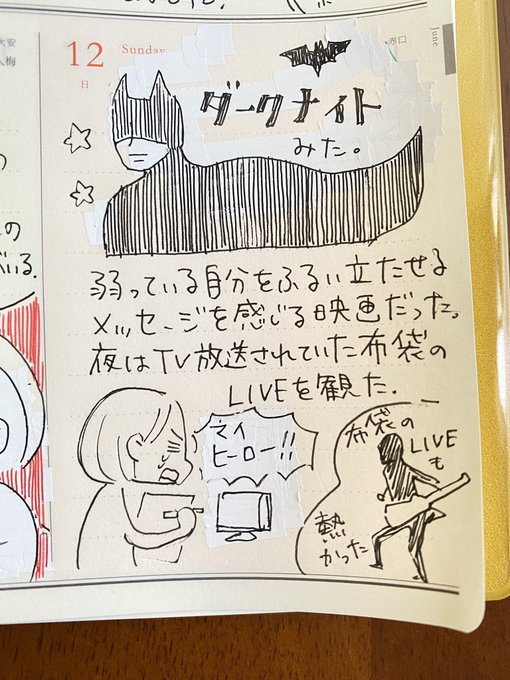 大安
12
Sunday
日
赤口
June
ダークナイト
みた。
弱っている自分をふるい立たせる
メッセージを感じる映画だった。
夜はTV放送されていた布袋の
LIVEを観た.
マイ
ヒーロー!!
布袋の
LIVE
も
熱
かった
の
いる.